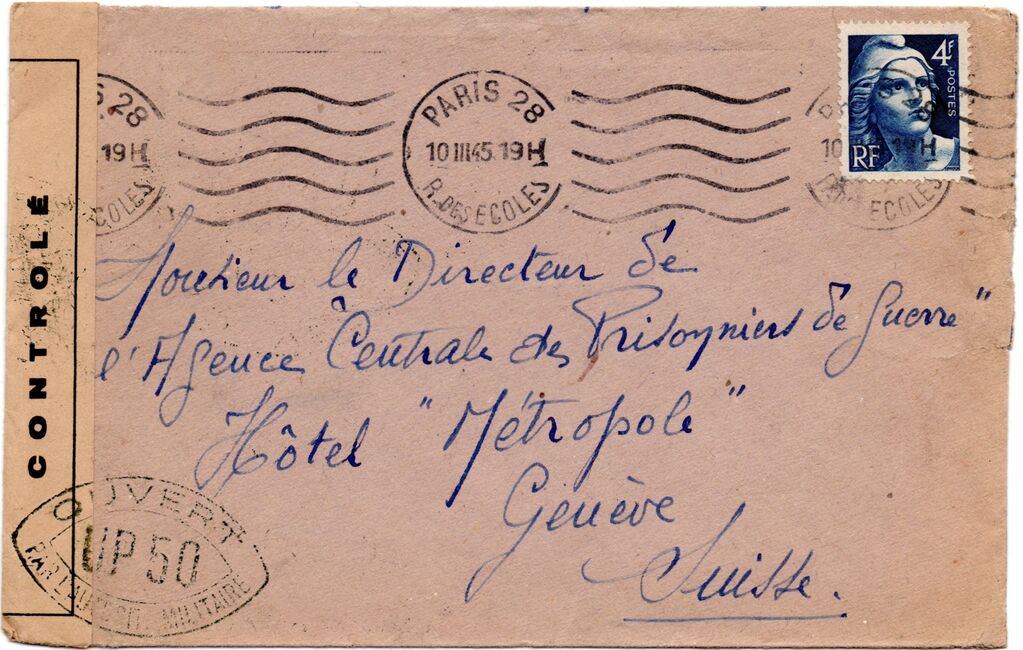 4F
POSTES
RF
PARIS 28
10 III 45. 19H
R. DES ECOLES
S 28
19H
COLES
10
19H
ECOLES
CONTROLÉ
Monsieur le Directeur de
l'Agence "Centrale des Prisonniers de Guerre"
Hôtel "Métropole"
Genève
Suisse.
OUVERT
UP 50
PAR L'AUTORITÉ MILITAIRE